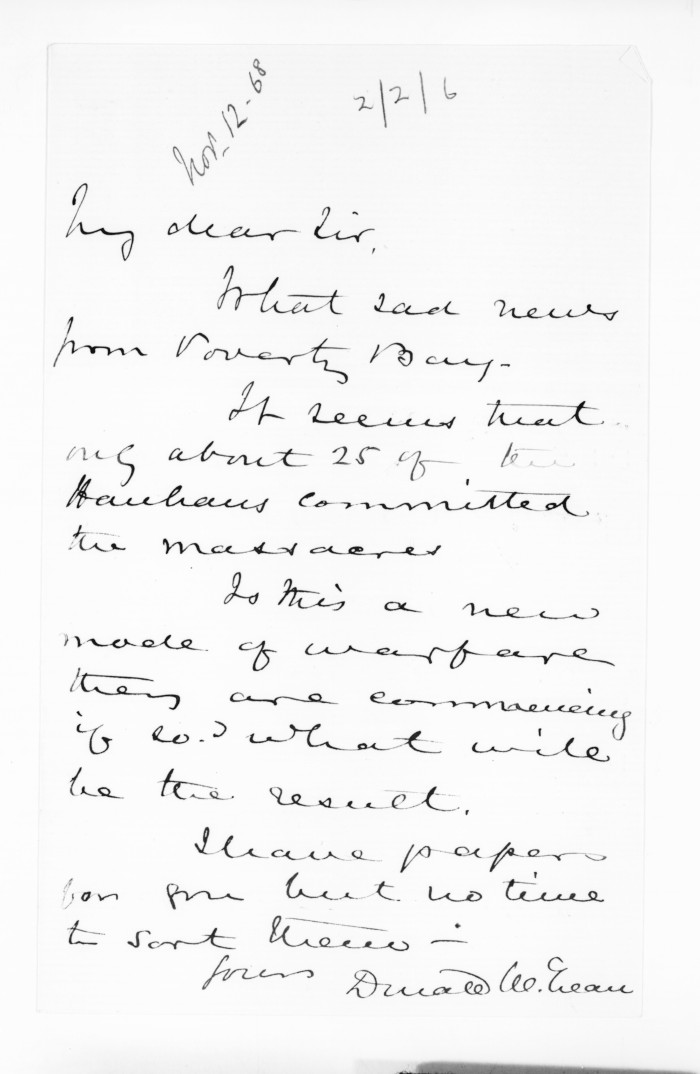 Nov. 12 - 68
2/2/6
My dear Sir,
What sad news
from Poverty Bay -
It seems that
only about 25 of the
Hauhaus committed
the massacres
Is this a new
mode of warfare
they are commencing
if so? what will
be the result.
I have papers
for you but no time
to sort them -
Yours
Donald McLean